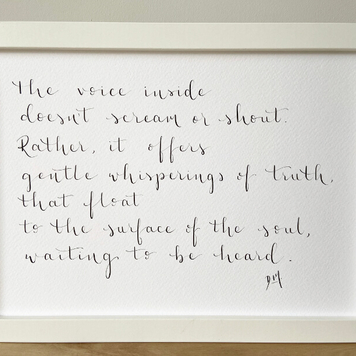 The voice inside
doesn't scream or shout.
Rather, it offers
gentle whisperings of truth,
that float
to the surface of the soul,
waiting to be heard.